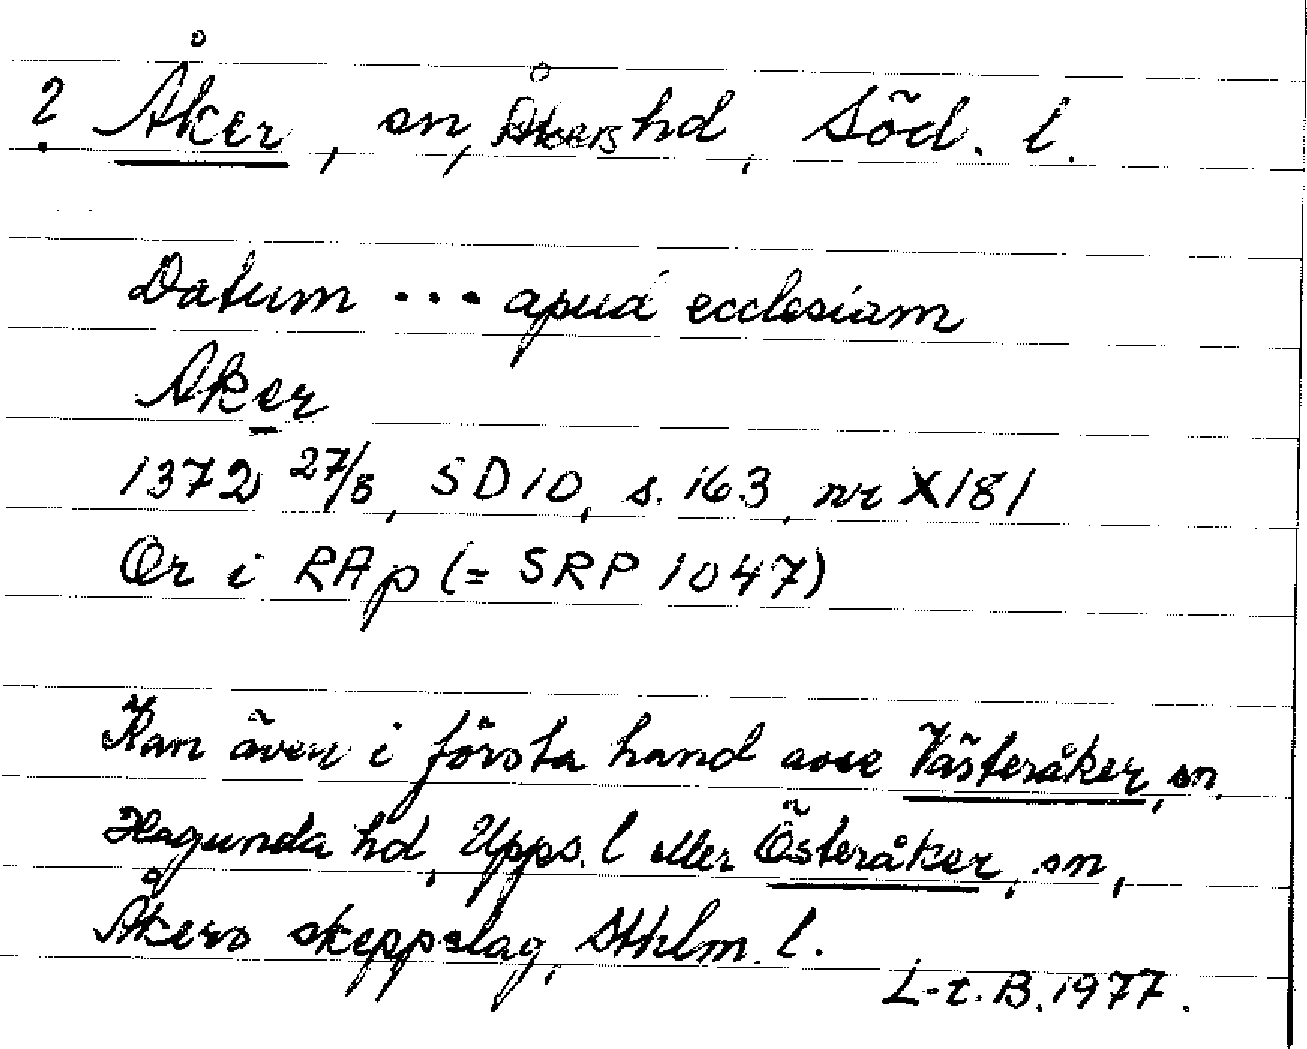 ? Åker, sn, Åkers hd, Söd. l.
Datum ... apud ecclesiam
Aker
1372 27/8, SD 10, s. 163, nr X181
Or i RAp (= SRP 1047)
Kan även i första hand avse Västeråker, sn,
Hagunda hd, Upps. l eller Österåker, sn,
Åkers skeppslag, Sthlm. l.
L-t. B. 1977.